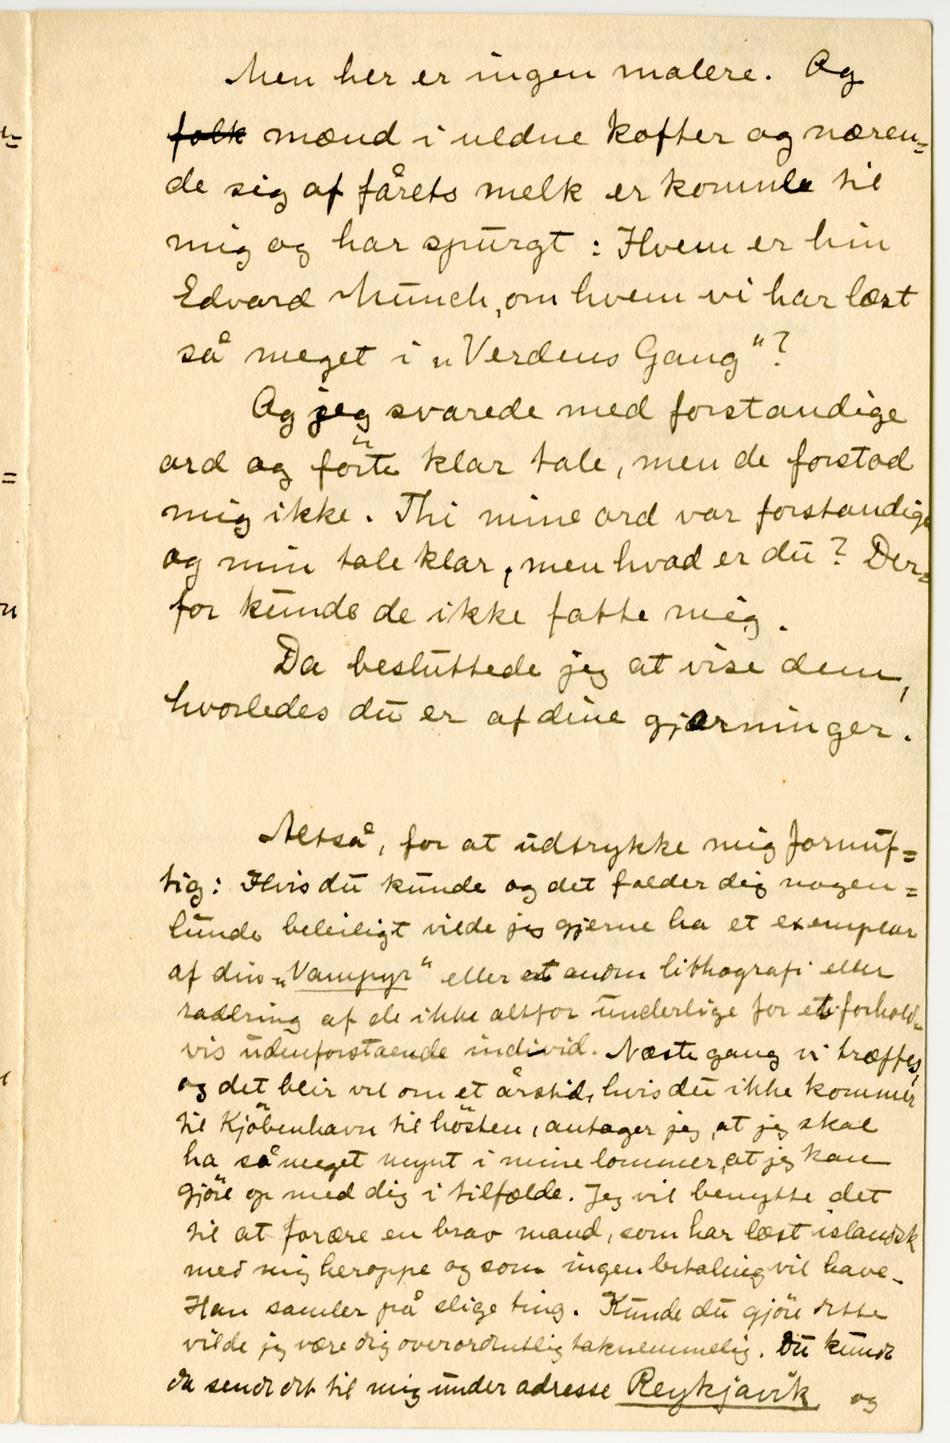 Men her er ingen malere. Og
folk mænd i uldne kofter og næren=
de sig af fårets melk er komne til
mig og har spurgt: Hvem er hin
Edvard Munch, om hvem vi har læst
så meget i „Verdens Gang"?
Og jeg svarede med forstandige
ord og förte klar tale, men de forstod
mig ikke. Thi mine ord var forstandige
og min tale klar, men hvad er du? Der=
for kunde de ikke fatte mig.
Da besluttede jeg at vise dem,
hvorledes du er af dine gjerninger.
Altså, for at udtrykke mig fornuf=
tig: Hvis du kunde og det falder dig nogen=
lunde beleiligt vilde jeg gjerne ha et exemplar
af din „Vampyr" eller et anden lithografi eller
radering af de ikke altfor underlige for et forholds=
vis udenforstaende individ. Næste gang vi træffes,
og det blir vel om et årstid, hvis du ikke kommer
til Kjöbenhavn til hösten, antager jeg, at jeg skal
ha så meget mynt i mine lommer, at jeg kan
gjöre op med dig i tilfælde. Jeg vil benytte det
til at forære en brav mand, som har læst islandsk
med mig heroppe og som ingen betaling vil have.
Han samler på slige ting. Kunde du gjöre dette
vilde jeg være dig overordentlig taknemmelig. Du kunde
da sende det til mig under adresse Reykjavik og